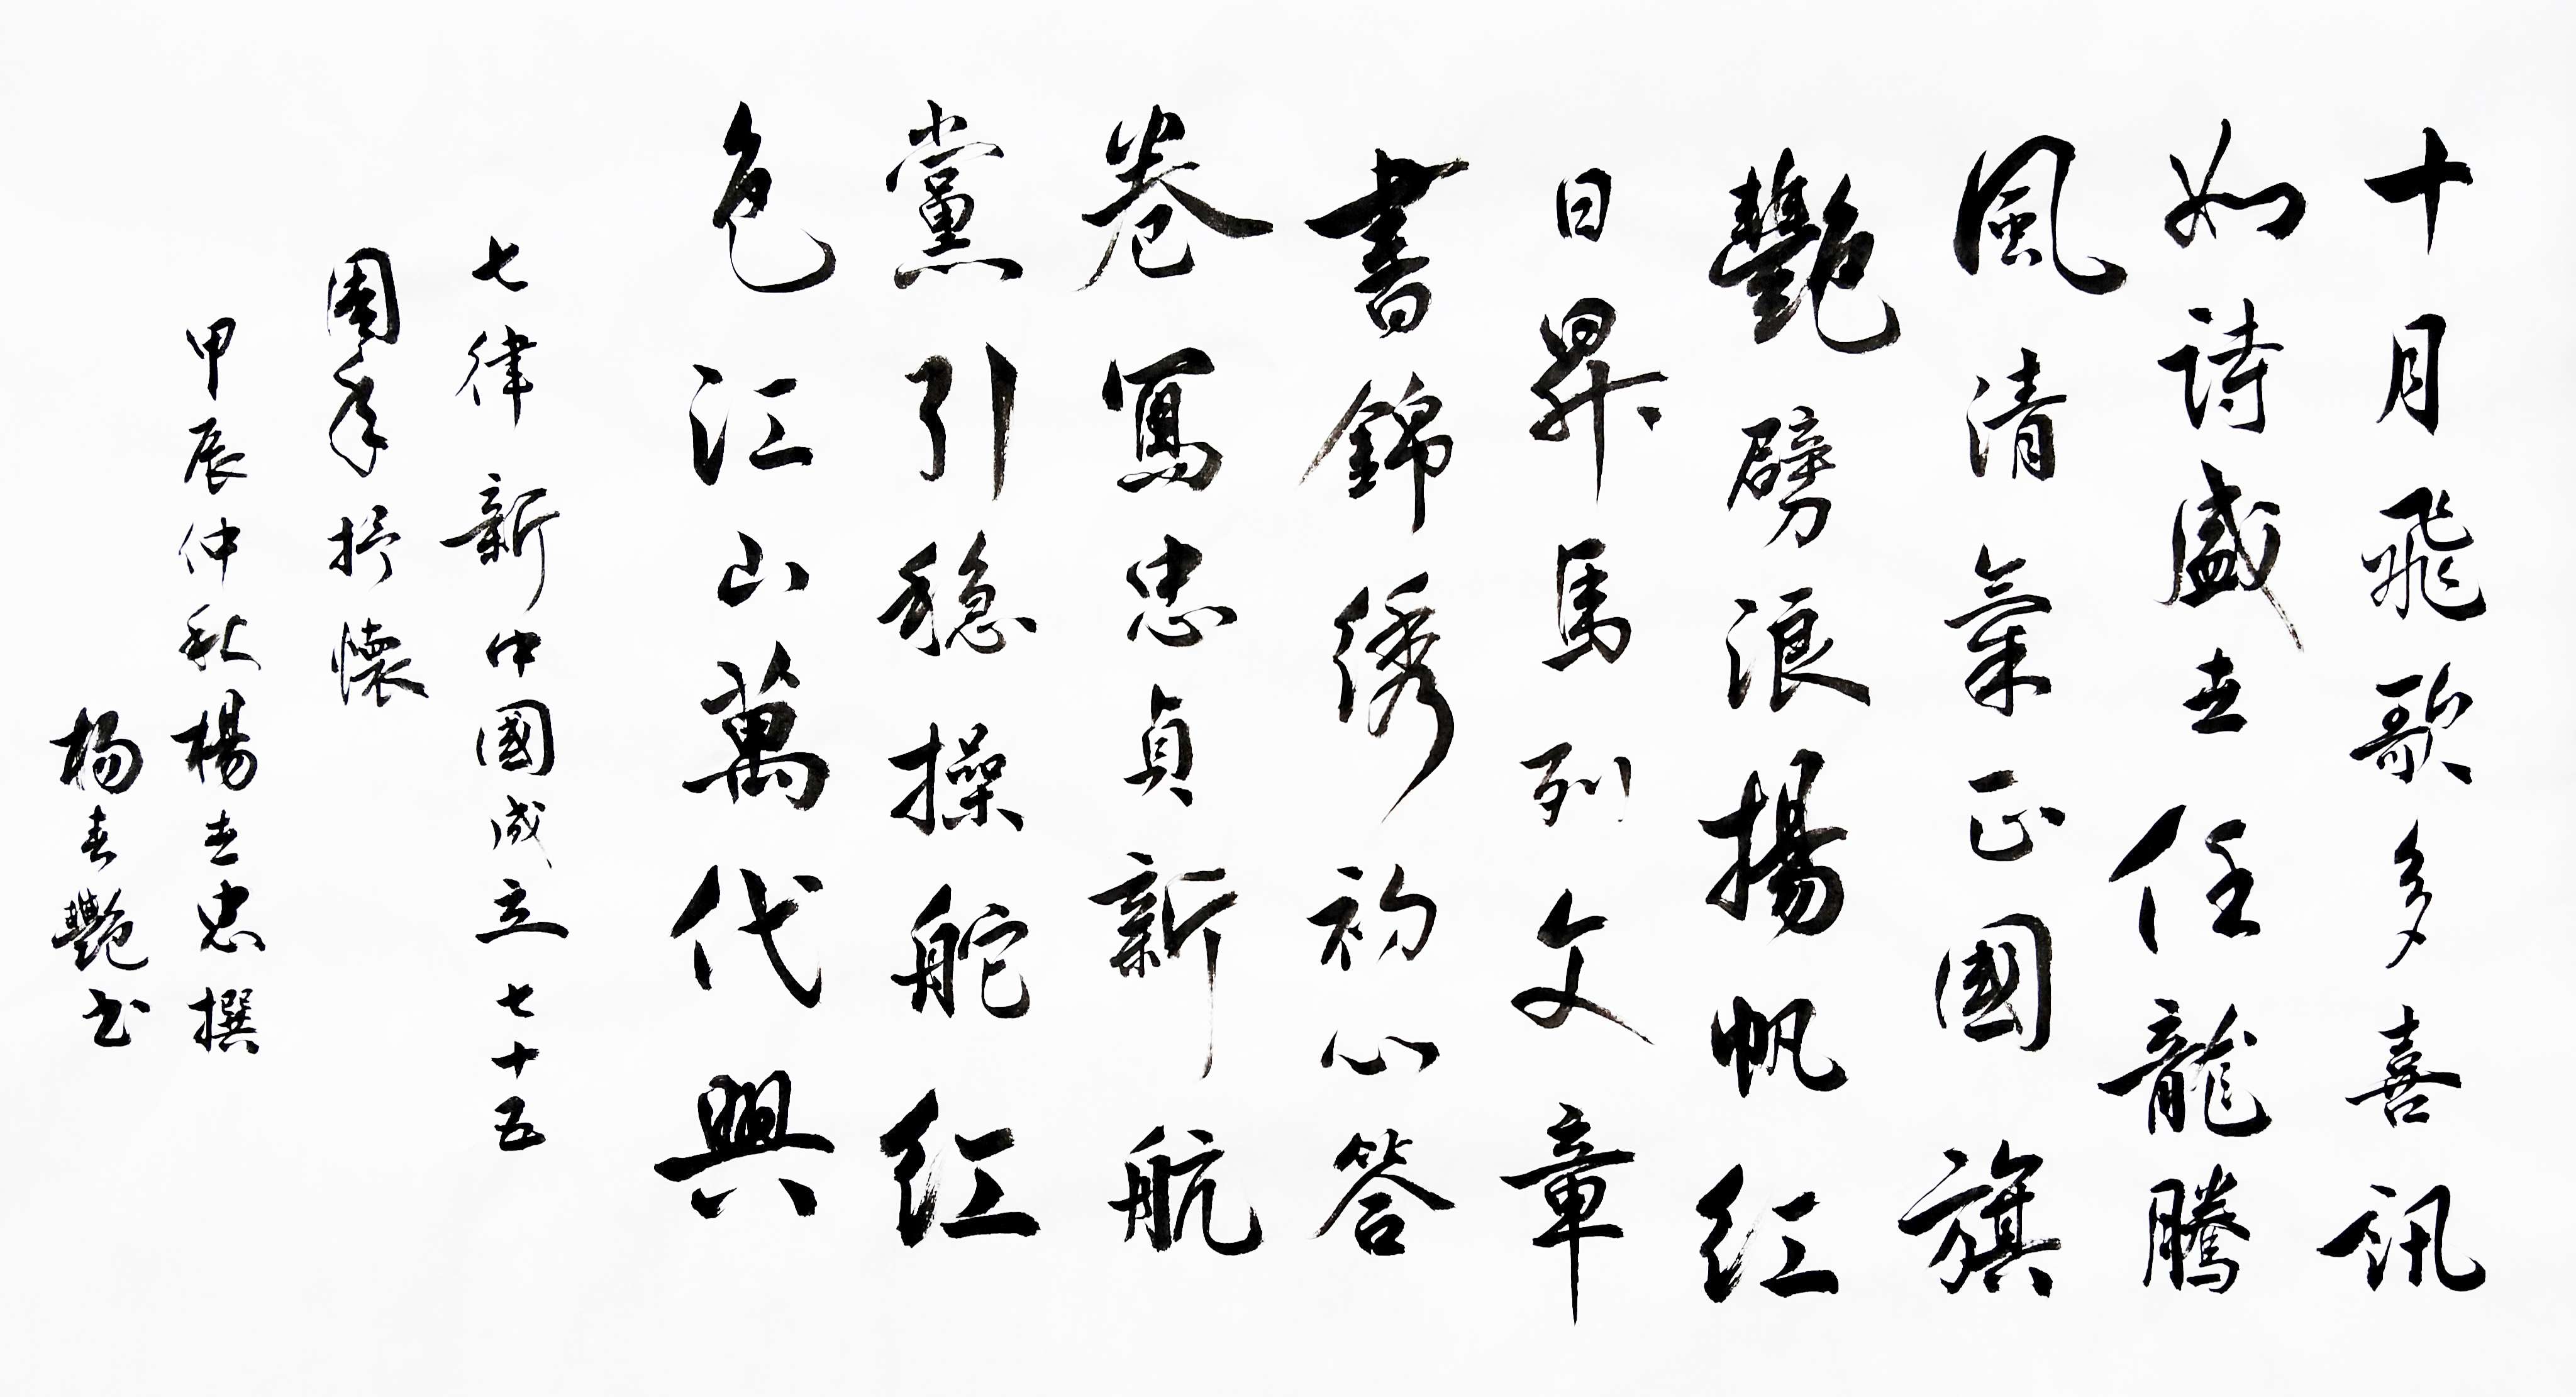 十月飛歌多喜訊
如詩盛世任龍騰
風清氣正國旗
艷劈浪揚帆紅
日昇馬列文章
書錦綉初心答
卷寫忠貞新航
黨引穩操舵紅
色江山萬代興
七律新中國成立七十五
周年抒懷
甲辰仲秋楊世忠撰
楊春艷书